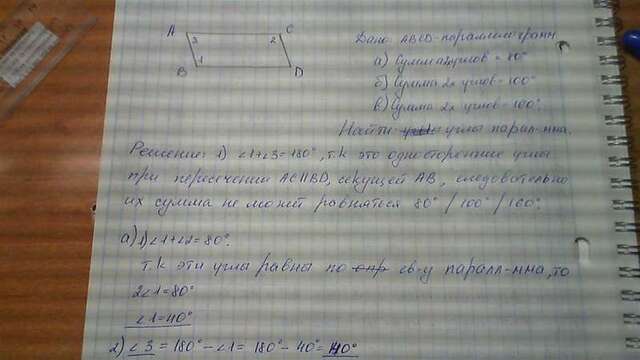 A C
3 2
1
B D
Дано ABCD-параллелограмм
а) Сумма 2х углов = 80°
б) Сумма 2х углов = 100°
в) Сумма 2х углов = 160°.
Найти углы парал-мма.
Решение: 1) ∠1+∠3=180°, т.к это односторонние углы
при пересечении AC||BD, секущей AB, следовательно
их сумма не может равняться 80° / 100° / 160°.
а) 1) ∠1+∠2=80°.
т.к эти углы равны по опр св-у паралл-мма, то
2∠1=80°
∠1=40°
2) ∠3 = 180° - ∠1 = 180° - 40° = 140°